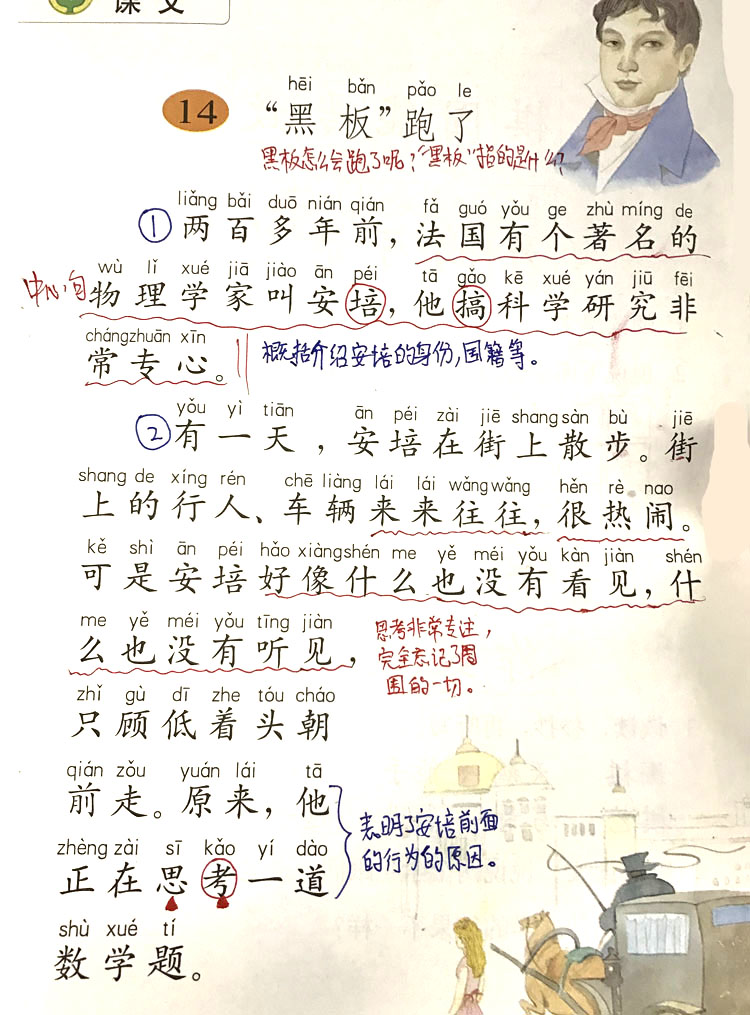 课文
hēi bǎn pǎo le
14 “黑板”跑了
黑板怎么会跑了呢？“黑板”指的是什么？
liǎng bǎi duō nián qián fǎ guó yǒu ge zhù míng de
①两百多年前，法国有个著名的
wù lǐ xué jiā jiào ān péi tā gǎo kē xué yán jiū fēi
中心句 物理学家叫安培，他搞科学研究非
chángzhuān xīn
常专心。 概括介绍安培的身份，国籍等。
yǒu yì tiān ān péi zài jiē shang sàn bù jiē
②有一天，安培在街上散步。街
shang de xíng rén chē liàng lái lái wǎngwǎng hěn rè nao
上的行人、车辆来来往往，很热闹。
kě shì ān péi hǎo xiàngshén me yě méi yǒu kàn jiàn shén
可是安培好像什么也没有看见，什
me yě méi yǒu tīng jiàn
么也没有听见，
思考非常专注，
完全忘记了周
围的一切。
zhǐ gù dī zhe tóu cháo
只顾低着头朝
qián zǒu yuán lái tā
前走。原来，他
zhèng zài sī kǎo yí dào
正在思考一道
shù xué tí
数学题。
表明了安培前面
的行为的原因。